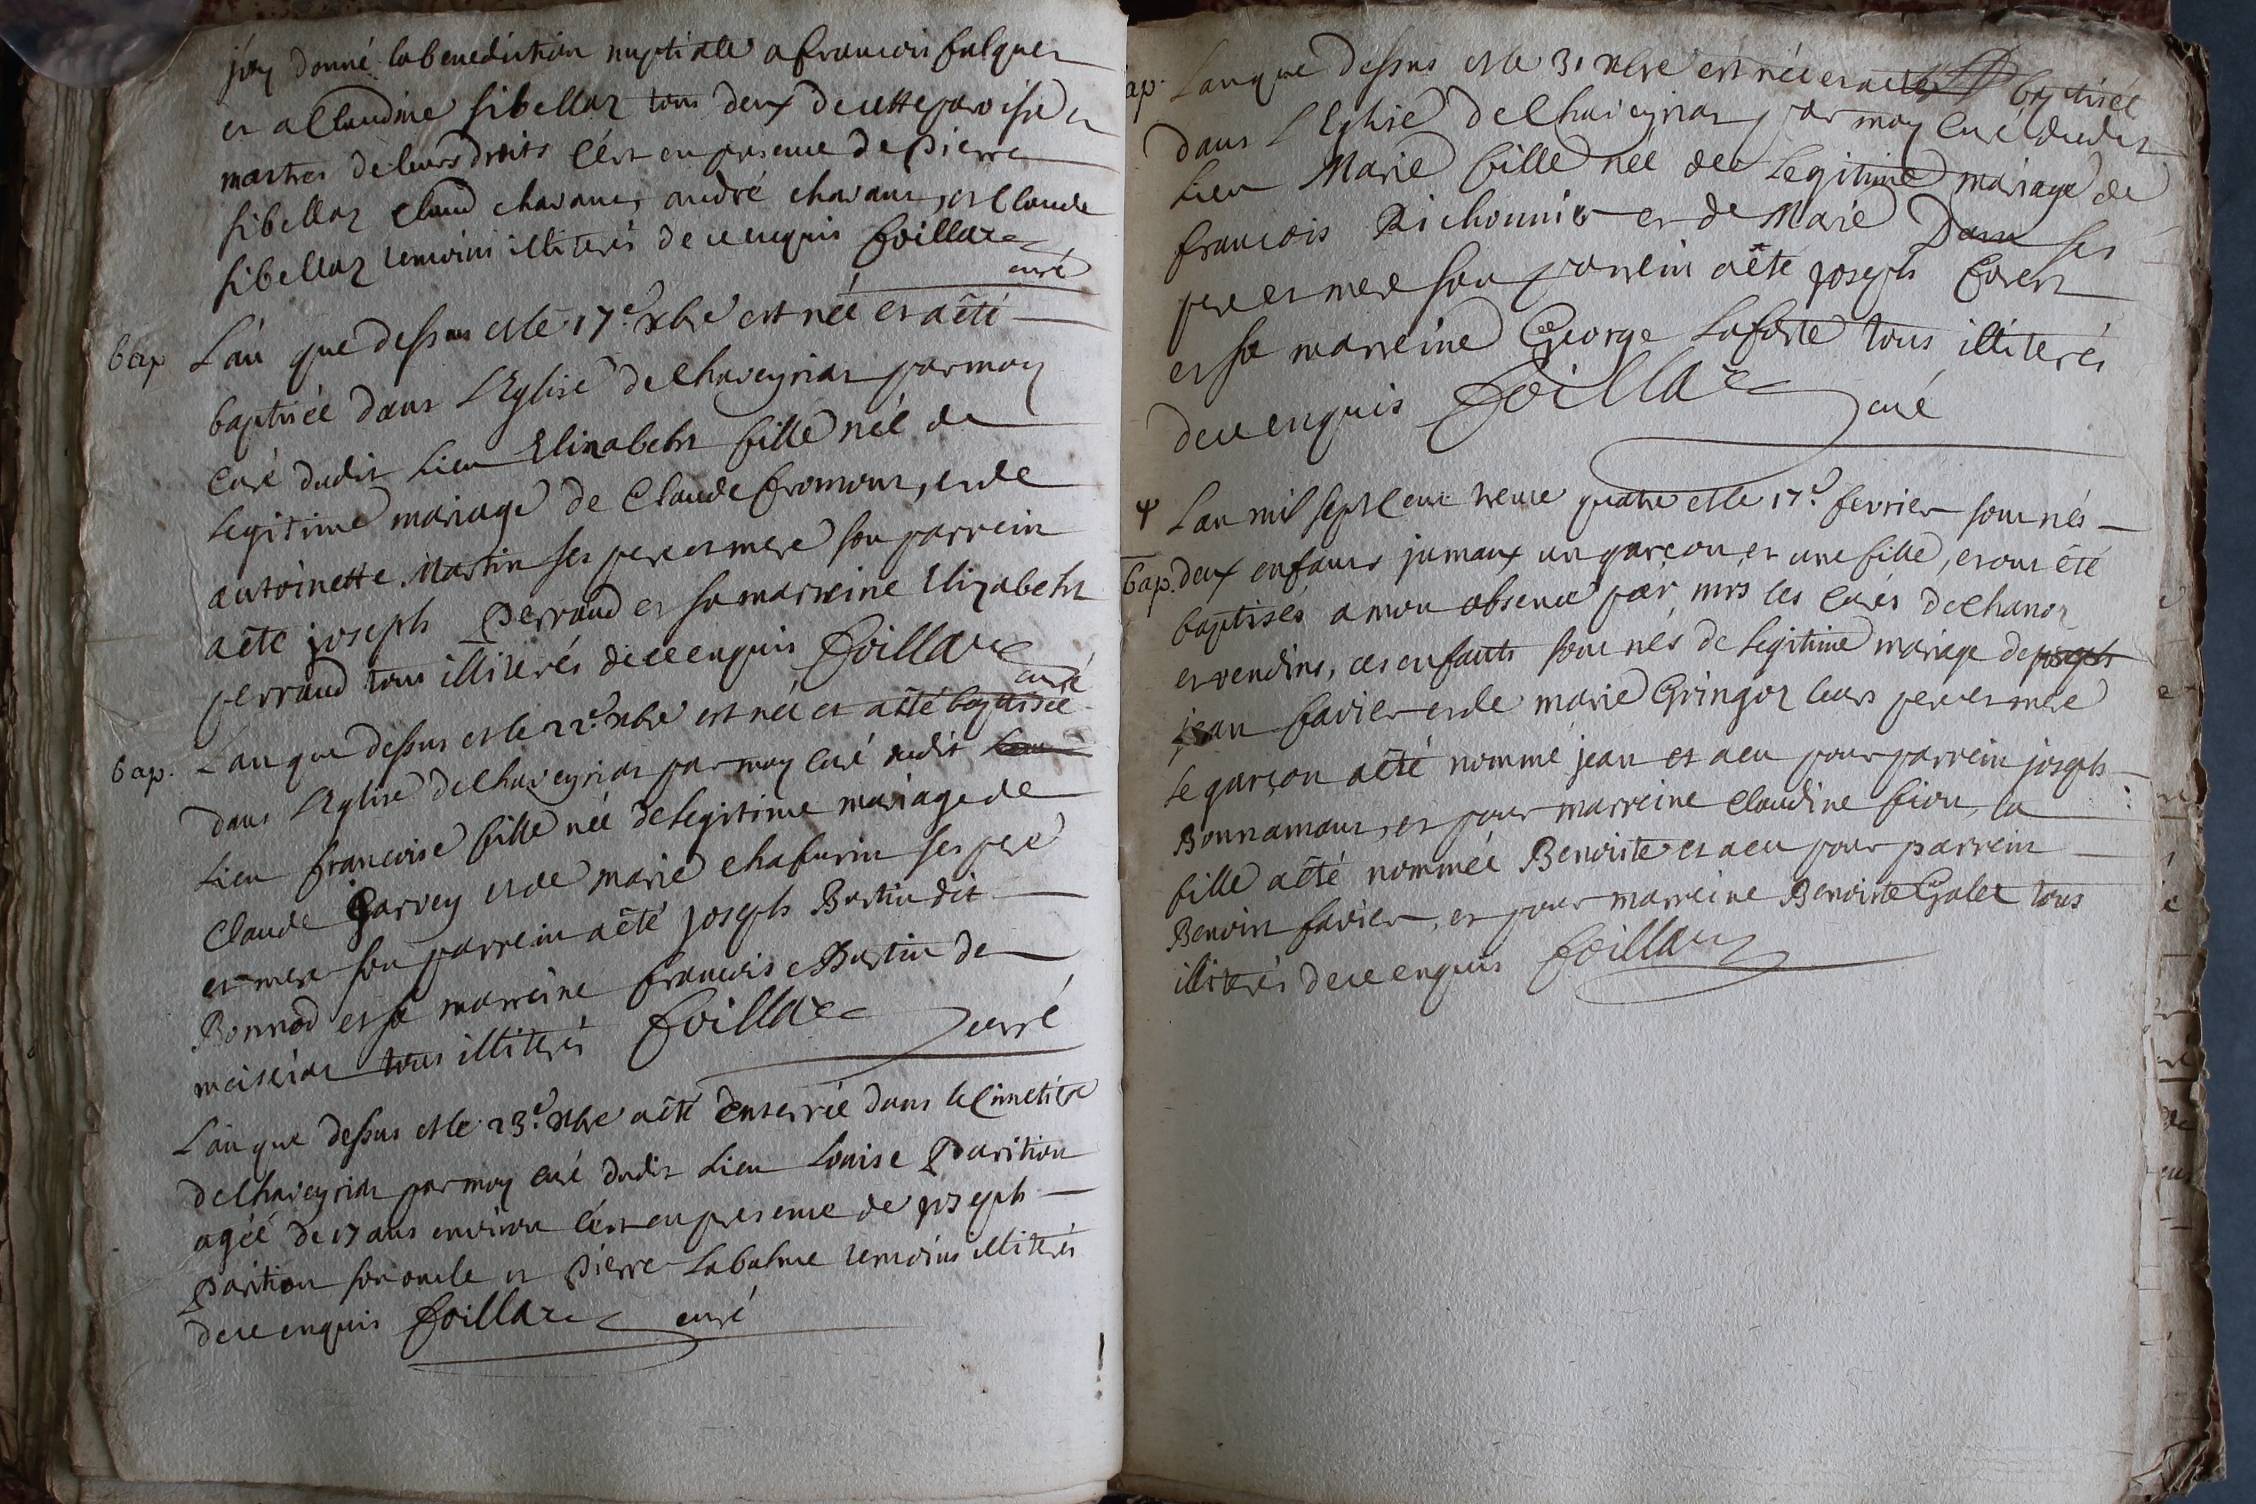 j'ay donné la benediction nuptiale a francois falquet
et a Claudine sibellaz tous deux de cette paroisse et
maitres de leurs droits c'est en presence de pierre
sibellaz claud chavant, andré chavant, et Claude
sibellaz temoins illiterés de ce enquis foillat
curé
bap L'an que dessus et le 17e xbre est née et a êté
baptisée dans L'Eglise de Chaveyriat par moy
Curé dudit Lieu Elizabeht fille née de
legitime mariage de Claude fromont, et de
antoinette Martin ses pere et mere son parrein
a êté joseph perraud et sa marreine Elizabeht
perraud tous illiterés de ce enquis foillat
curé
bap. L'an que dessus et le 22e xbre est née et a êté baptisée
dans L'Eglise de Chaveyriat par moy Curé dudit
Lieu francoise fille née de legitime mariage de
Claude Garvey et de marie chafurin ses pere
et mere son parrein a êté joseph Burtin dit
Bonnod et sa marreine francoise Burtin de
meiseriat tous illiterés foillat curé
L'an que dessus et le 23e xbre a êté enterrée dans le Cimetiere
de Chaveyriat par moy curé dudit Lieu Louise parition
agée de 17 ans environ c'est en presence de joseph
parition son oncle et pierre Labalme temoins illiterés
de ce enquis foillat curé
bap. L'an que dessus et le 31 xbre est née et a eté baptisée
dans L'Eglise de Chaveyriat par moy Curé dudit
Lieu Marie fille née de legitime mariage de
francois Pichonnier et de Marie Dam ses
pere et mere son parrein a êté joseph
et sa marreine George Laforte tous illiterés
de ce enquis foillat curé
L'an mil sept cent trente quatre et le 17e fevrier sont nés
bap. deux enfants jumaux un garçon et une fille, et ont été
baptisés a mon absence par mrs les curés de Chanoz
et vendins, ces enfants sont nés de legitime mariage de joseph
jean favier et de marie Gringoz leurs pere et mere
le garçon a êté nommé jean et a eu pour parrein joseph
Bonnamour, et pour marreine Claudine fion, la
fille a êté nommée Benoite et a eu pour parrein
Benoit favier, et pour marreine Benoite Galet tous
illiterés de ce enquis foillat